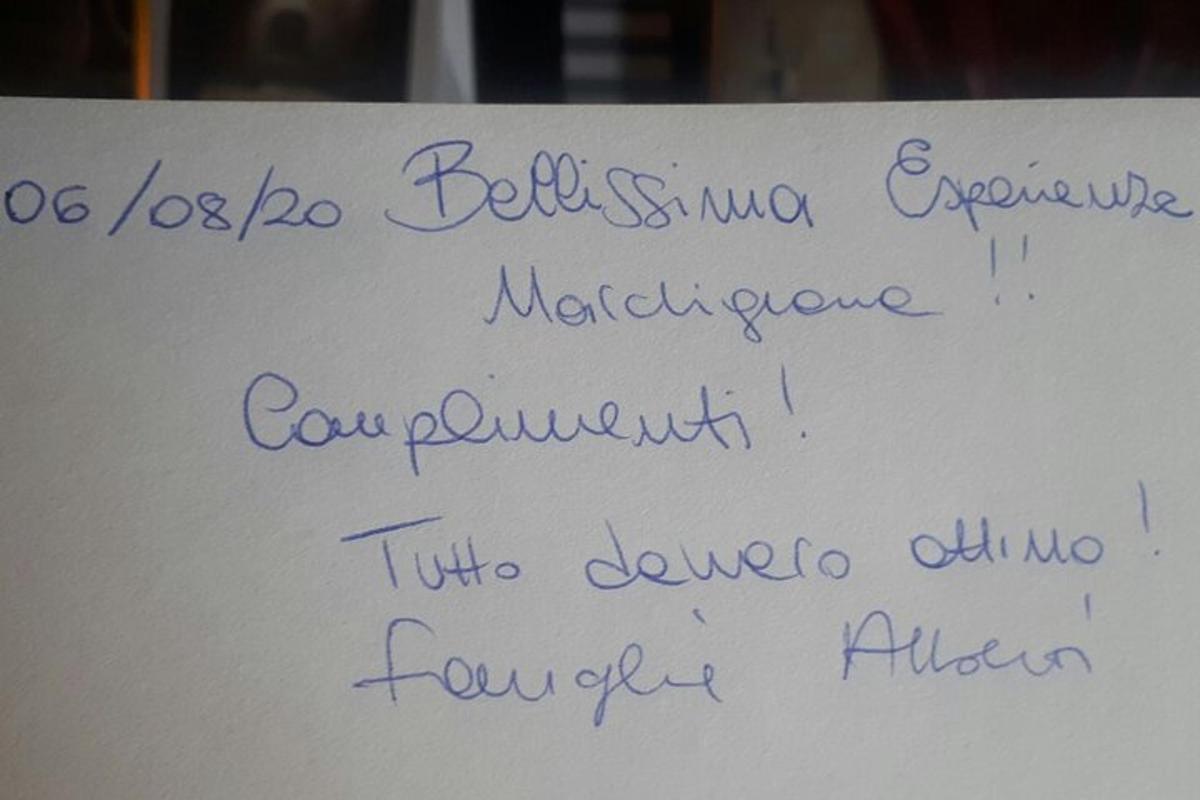 06/08/20 Bellissima Esperienza
Marchigiana !!
Complimenti !
Tutto davvero ottimo !
Famiglia